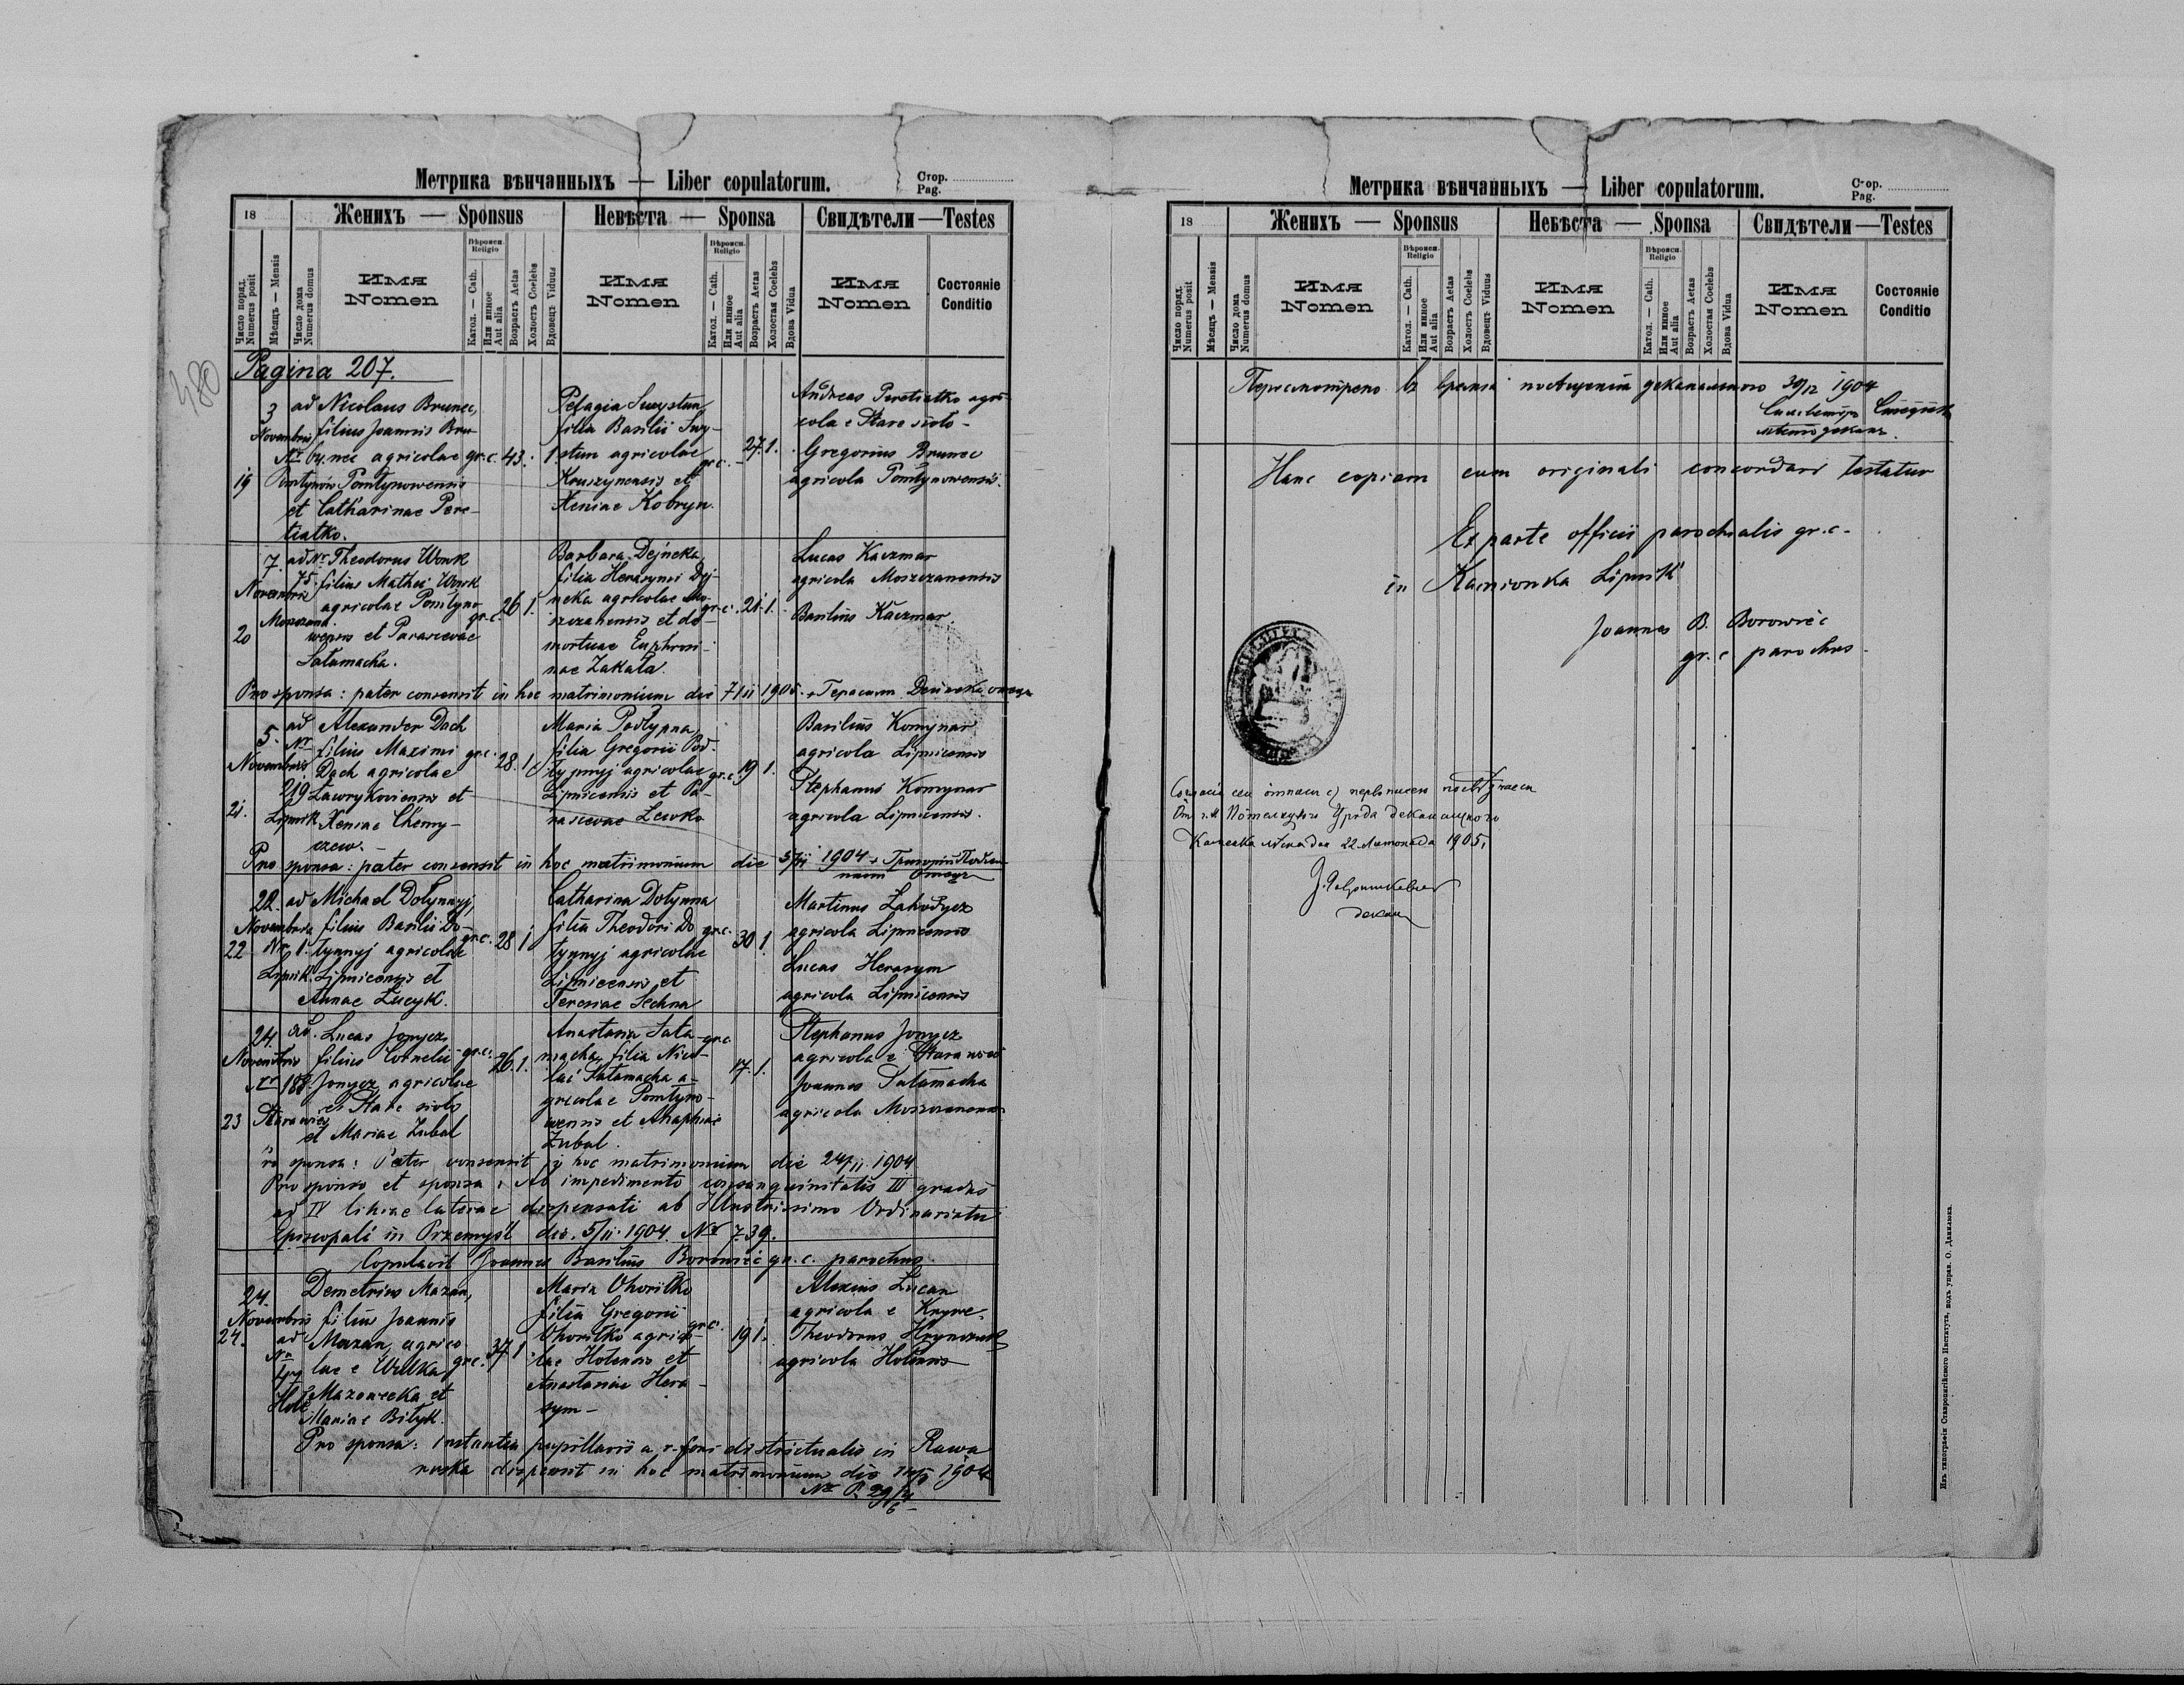 480
Метрика вѣнчанныхъ — Liber copulatorum.
Стор.
Pag.
18
Женихъ — Sponsus
Невѣста — Sponsa
Свидѣтели — Testes
Число поряд.
Numerus posit
Мѣсяцъ — Mensis
Число дома
Numerus domus
Имя
Nomen
Вѣроисп.
Religio
Катол. — Cath.
Или иное
Aut alia
Возрастъ Aetas
Холостъ Coelebs
Вдовецъ Viduus
Имя
Nomen
Вѣроисп.
Religio
Катол. — Cath.
Или иное
Aut alia
Возрастъ Aetas
Холостая Coelebs
Вдова Vidua
Имя
Nomen
Состояніе
Conditio
Pagina 207.
19
3
Novembris
ad
Nr 64.
Nicolaus Brunec,
filius Joannis Bru-
nec agricolae
Pomtynowensis
et Catharinae Pere-
tiatko.
gr.c. 43. 1.
Pelagia Swystun,
filia Basilii Swy-
stun agricolae
et
Xeniae Kobryn.
gr.c. 27. 1.
Andreas Peretiatko agri-
cola e Stare sioło -
Gregorius Brunec
agricola Pomtynowensis.
20
7.
Novembris
ad Nr
75.
Theodorus Wonk
filius Mathei Wonk
agricolae Pomtyno-
wensis et Parascevae
Sałamacha.
gr.c. 26 1.
Barbara Dejneka,
filia Herasymi Dej-
neka agricolae Mo-
szczanensis et de-
mortuae Euphrosi-
nae Zakała.
gr.c. 21. 1.
Lucas Kaczmar
agricola Moszczanensis
Basilius Kaczmar.
Pro sponsa: pater consensit in hoc matrimonium die
21.
5.
Novembris
ad
Nr
219
Lipnik
Alexander Dach
filius Maximi
Dach agricolae
Ławrykoviensis et
Xeniae Chomy-
czew.
gr.c. 28. 1.
Maria Podłypna,
filia Gregorii Pod-
łypnyj agricolae
Lipnicensis et Pa-
rascevae Lewko
gr.c. 19 1.
Basilius Komynar
agricola Lipnicensis
Stephanus Komynar
agricola Lipnicensis.
Pro sponsa: pater consensit in hoc matrimonium die 5/11 1904
22
22.
Novembris
ad
Nr. 1.
Lipnik
Michael Dołynnyj,
filius Basilii Do-
łynnyj agricolae
Lipnicensis et
Annae Łucyk.
gr.c. 28 1
Catharina Dołynna
filia Theodori Do-
łynnyj agricolae
Lipnicensis et
Teresiae Sechna
gr.c. 30 1.
Martinus Zahodycz
agricola Lipnicensis
Lucas Herasym
agricola Lipnicensis
23
24.
Novembris
ad
Nr 188
Starawieś
Lucas Jonycz
filius Cornelii
Jonycz agricolae
e Stare sioło
et Mariae Zubal
gr.c. 26. 1.
Anastasia Sała-
macha, filia Nico-
lai Sałamacha a-
gricolae Pomtyno-
wensis et Anaphiae
Zubal.
gr.c. 17. 1.
Stephanus Jonycz
agricola e Starawieś
Joannes Sałamacha
agricola Moszczanensis
sponsa: Pater consensit in hoc matrimonium die 24/11 1904
Pro sponso et sponsa: Ab impedimento consanguinitatis III gradus
ad IV lineae lateralae dispensati ab Illustrissimo Ordinariatu
Episcopali in Przemyśl die. 5/11. 1904. Nr 739.
Copulavit Joannes Basilius Borowiec gr. c. parochus.
24.
24.
Novembris
ad
Nr
Hole
Demetrius Mazan,
filius Joannis
Mazan, agrico-
lae e Wulka
Mazowecka et
Mariae Biłyk.
gr.c. 37 1
Maria Ohoriłko
filia Gregorii
Ohoriłko agrico-
lae Holensis et
Anastasiae Hera-
sym -
gr.c. 19 1.
Alexius Łucan
agricola e Knywe.
Theodorus Hrynczuk
agricola Holensis
Pro sponsa: instantia pupillaris a. r. fori districtualis in Rawa
ruska dispensit in hoc matrimonium die 1904
Nr P. 29/4
6
Метрика вѣнчанныхъ — Liber copulatorum.
Стор.
Pag.
18
Женихъ — Sponsus
Невѣста — Sponsa
Свидѣтели — Testes
Число поряд.
Numerus posit
Мѣсяцъ — Mensis
Число дома
Numerus domus
Имя
Nomen
Вѣроисп.
Religio
Катол. — Cath.
Или иное
Aut alia
Возрастъ Aetas
Холостъ Coelebs
Вдовецъ Viduus
Имя
Nomen
Вѣроисп.
Religio
Катол. — Cath.
Или иное
Aut alia
Возрастъ Aetas
Холостая Coelebs
Вдова Vidua
Имя
Nomen
Состояніе
Conditio
Пересмотрено въ времѧ посѣщенія деканального 30/12 1904
Hanc copiam cum originali concordari testatur
Ex parte officii parochialis gr.c.
in Kamionka Lipnik
Joannes B. Borowiec
gr. c parochus
22 Листопада 1905.
декан
Изъ типографіи Ставропигійского Института, подъ управ. О. Данилюка.